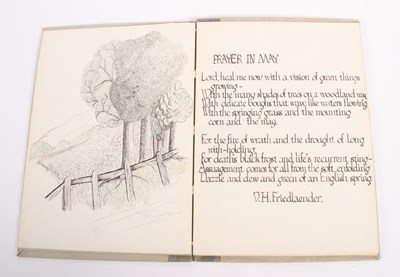 PRAYER IN MAY
Lord, heal me now with a vision of green things
growing-
With the many shades of trees on a woodland way
With delicate boughs that wave like waters flowing
With the springing grass and the mounting
corn and the may.
For the fire of wrath and the drought of long
with-holding,
for death's black frost and life's recurrent sting-
Assuagement comes for all from the soft enfolding
Dazzle and dew and green of an English spring.
V.H. Friedlaender.